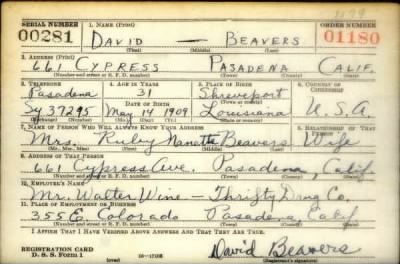 SERIAL NUMBER 1. NAME (Print) ORDER NUMBER
00281 DAVID — BEAVERS 01180
(First) (Middle) (Last)
2. ADDRESS (Print)
661 CYPRESS PASADENA CALIF.
(Number and street or R. F. D. number) (Town) (County) (State)
3. TELEPHONE 4. AGE IN YEARS 5. PLACE OF BIRTH 6. COUNTRY OF CITIZENSHIP
Pasadena 31 Shreveport
(Town or county)
Sy 37295 DATE OF BIRTH May 14 1909 Louisiana U.S.A.
(Exchange) (Number) (Mo.) (Day) (Yr.) (State or country)
7. NAME OF PERSON WHO WILL ALWAYS KNOW YOUR ADDRESS 8. RELATIONSHIP OF THAT PERSON
Mrs. Ruby Nanette Beavers Wife
(Mr., Mrs., Miss) (First) (Middle) (Last)
9. ADDRESS OF THAT PERSON
661 Cypress Ave. Pasadena, Calif.
(Number and street or R. F. D. number) (Town) (County) (State)
10. EMPLOYER'S NAME
Mr. Walter Wine — Thrifty Drug Co.
11. PLACE OF EMPLOYMENT OR BUSINESS
355 E. Colorado Pasadena, Calif.
(Number and street or R. F. D. number) (Town) (County) (State)
I AFFIRM THAT I HAVE VERIFIED ABOVE ANSWERS AND THAT THEY ARE TRUE.
REGISTRATION CARD David Beavers
D. S. S. Form 1 (over) (Registrant's signature)